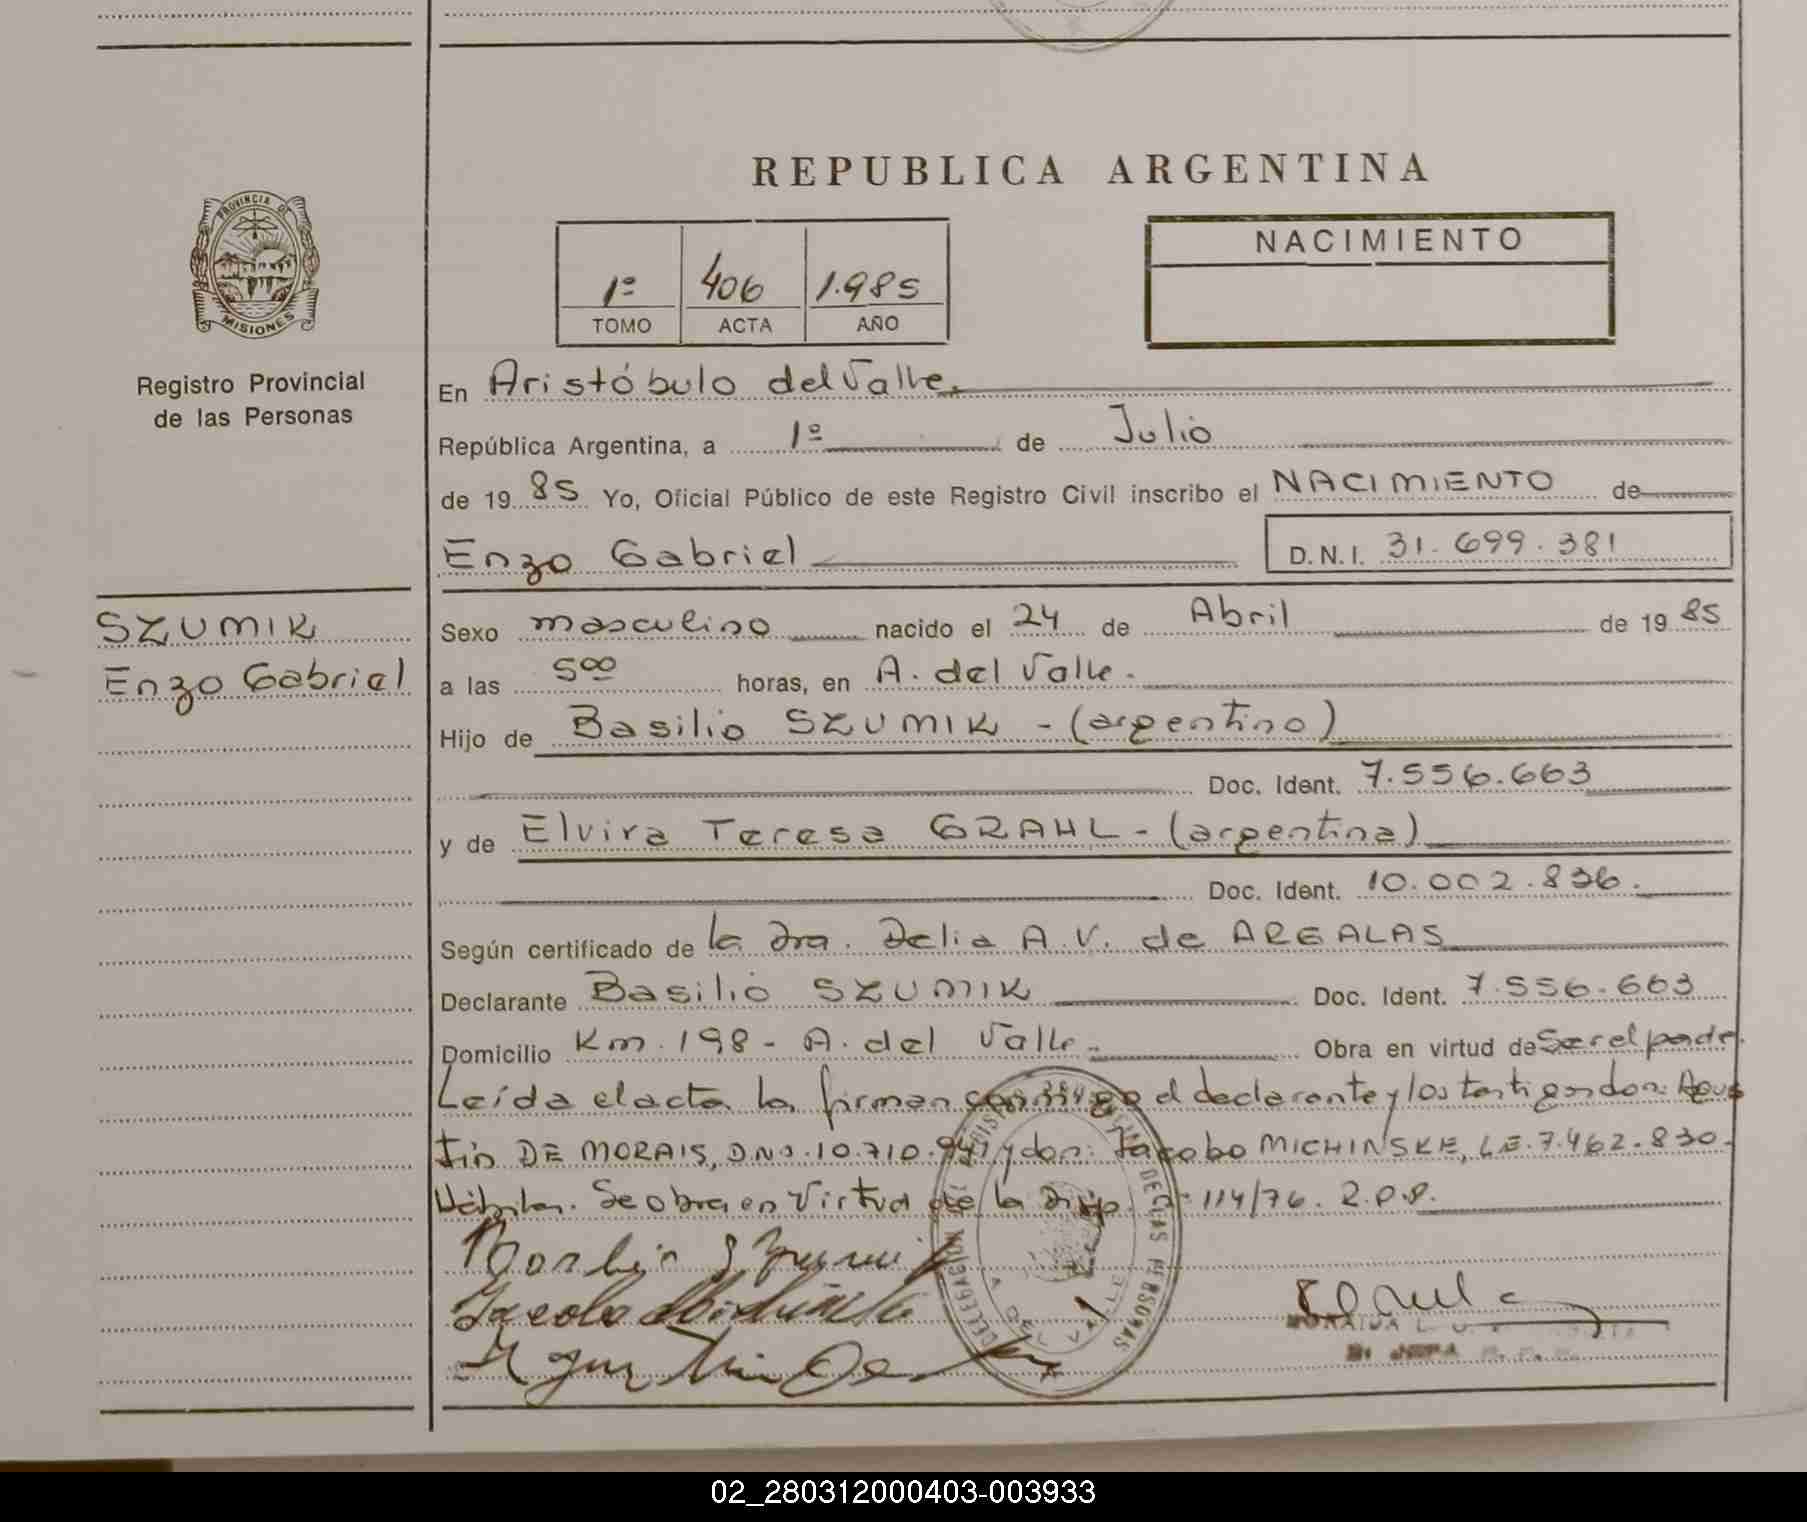 REPUBLICA ARGENTINA
PROVINCIA DE
MISIONES
Registro Provincial
de las Personas
1º 406 1.985
TOMO ACTA AÑO
NACIMIENTO
En Aristóbulo del Valle.
República Argentina, a 1º de Julio
de 19 85 Yo, Oficial Público de este Registro Civil inscribo el NACIMIENTO de
Enzo Gabriel D.N.I. 31.699.381
SZUMIK
Enzo Gabriel
Sexo masculino nacido el 24 de Abril de 19 85
a las 5 00 horas, en A. del Valle.
Hijo de Basilio SZUMIK - (argentino)
Doc. Ident. 7.556.663
y de Elvira Teresa GRAHL - (argentina)
Doc. Ident. 10.002.836.
Según certificado de la Dra. Delia A.V. de AREGALAS
Declarante Basilio SZUMIK Doc. Ident. 7.556.663
Domicilio Km. 198 - A. del Valle - Obra en virtud de Ser el padre.
Leída el acta la firman conmigo el declarante y los testigos don: Agus
tin DE MORAIS, D.N.I. 10.710.941 y don: Jacobo MICHINSKE, L.E. 7.462.830.
Hábiles. Se obra en Virtud de la Disp. 114/76. R.P.P.
DELEGACION
DE LAS PERSONAS
A. DEL VALLE
02_280312000403-003933